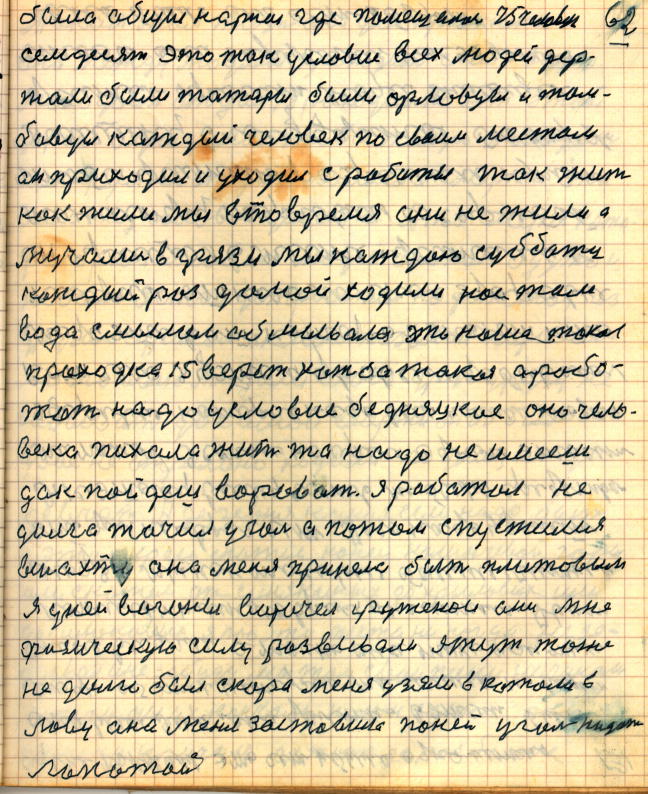 была общи нарты где помещали 75 человек 62
семдесят это так условие всех людей дер-
жали были татары были орловцы и там-
бовцы каждый человек по своим местам
он приходил и уходил с работы так жит
как жили мы в то время они не жили а
мучали в грязи мы каждою субботу
каждый раз домой ходили нас там
вода обмывала это наша такая
проходка 15 верст хотба такая а рабо-
тат надо условие бедняцкое оно чело-
века пихала жит та надо не имееш
дак пойдеш вороват. я работал не
долга тачил угол а потом спустился
вшахту она меня приняла быт плитовым
я уней вагоны ворочел груженои они мне
физическую силу развивали ятут тоже
не долго был скора меня узяли в
лову она меня заставила поней угол кидат
лопатай